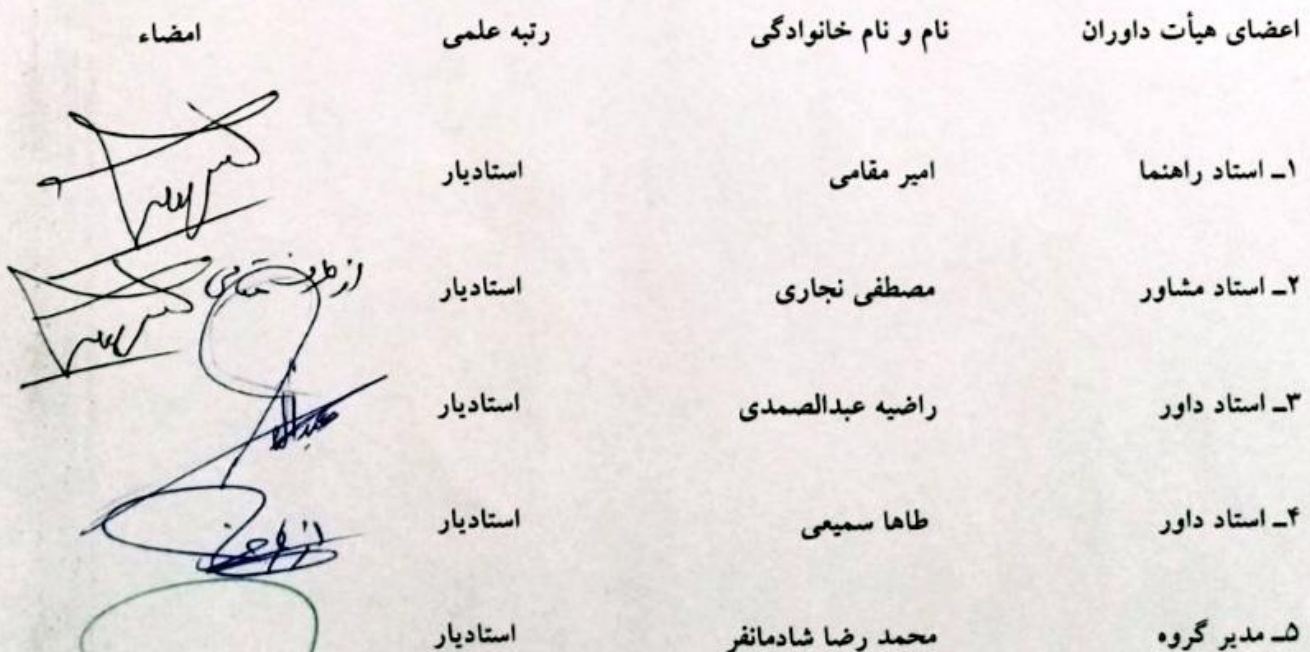 اعضای هیأت داوران نام و نام خانوادگی رتبه علمی امضاء
۱ـ استاد راهنما امیر مقامی استادیار
۲ـ استاد مشاور مصطفی نجاری استادیار از طرف
۳ـ استاد داور راضیه عبدالصمدی استادیار
۴ـ استاد داور طاها سمیعی استادیار
۵ـ مدیر گروه محمد رضا شادمانفر استادیار